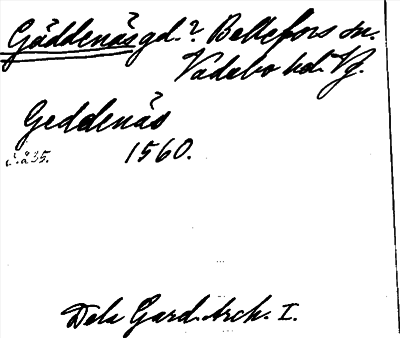 Gäddenäs gd.? Bellefors sn.
Vadsbo hd. Vg.
Geddenäs
s. 235. 1560.
Dela Gard. Arch. I.